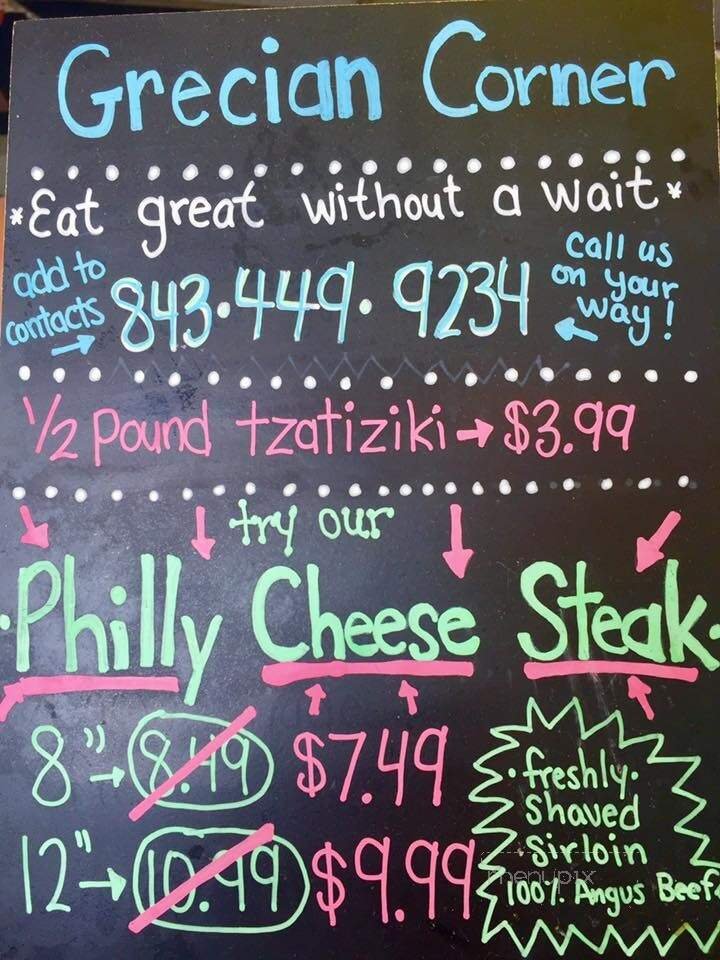 Grecian Corner
*Eat great without a wait*
add to contacts
843.449.9234
Call us on your way!
1/2 Pound tzatiziki → $3.99
try our
Philly Cheese Steak
8" → 8.49 $7.49
12" → 10.99 $9.99
freshly
Shaved
Sirloin
100% Angus Beef
menupix